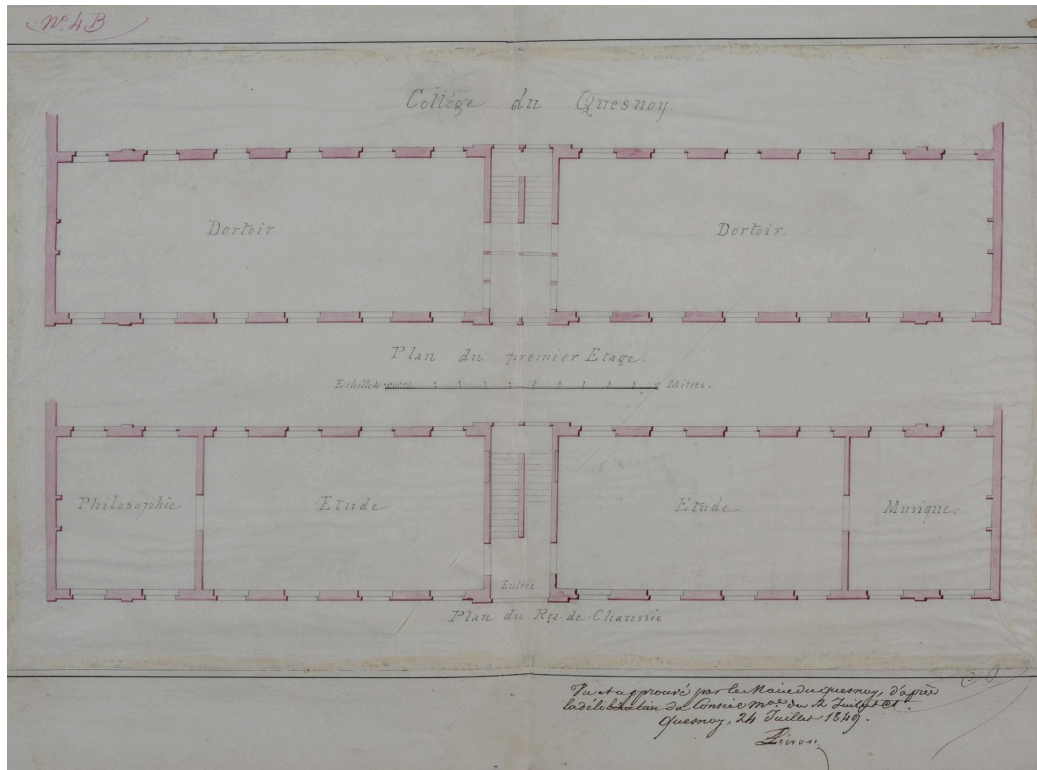 N°. 4 B
Collége du Quesnoy.
Dortoir
Dortoir.
Plan du premier Etage.
Echelle de Mètres.
Philosophie
Etude
Etude
Musique.
Entrée
Plan du Rez-de-Chaussée
Vu et approuvé par le Maire du Quesnoy, d'après
la délibération du Conseil mal du 2 Juillet ct.
Quesnoy, 24 Juillet 1849.